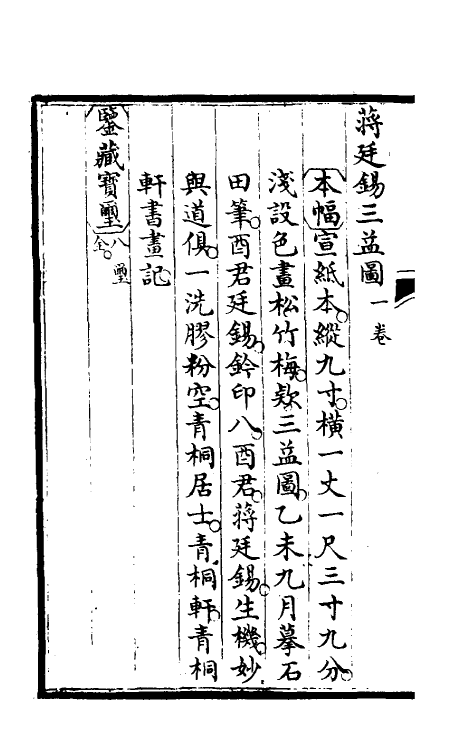 蔣廷錫三益圖一卷
本幅宣紙本。縱九寸。橫一丈一尺三寸九分。
淺設色畫松竹梅。款三益圖。乙未九月摹石
田筆。酉君廷錫。鈐印八。酉君。蔣廷錫。生機妙。
與道俱。一洗膠粉空。青桐居士。青桐軒。青桐
軒書畫記。
鑒藏寶璽八璽全。